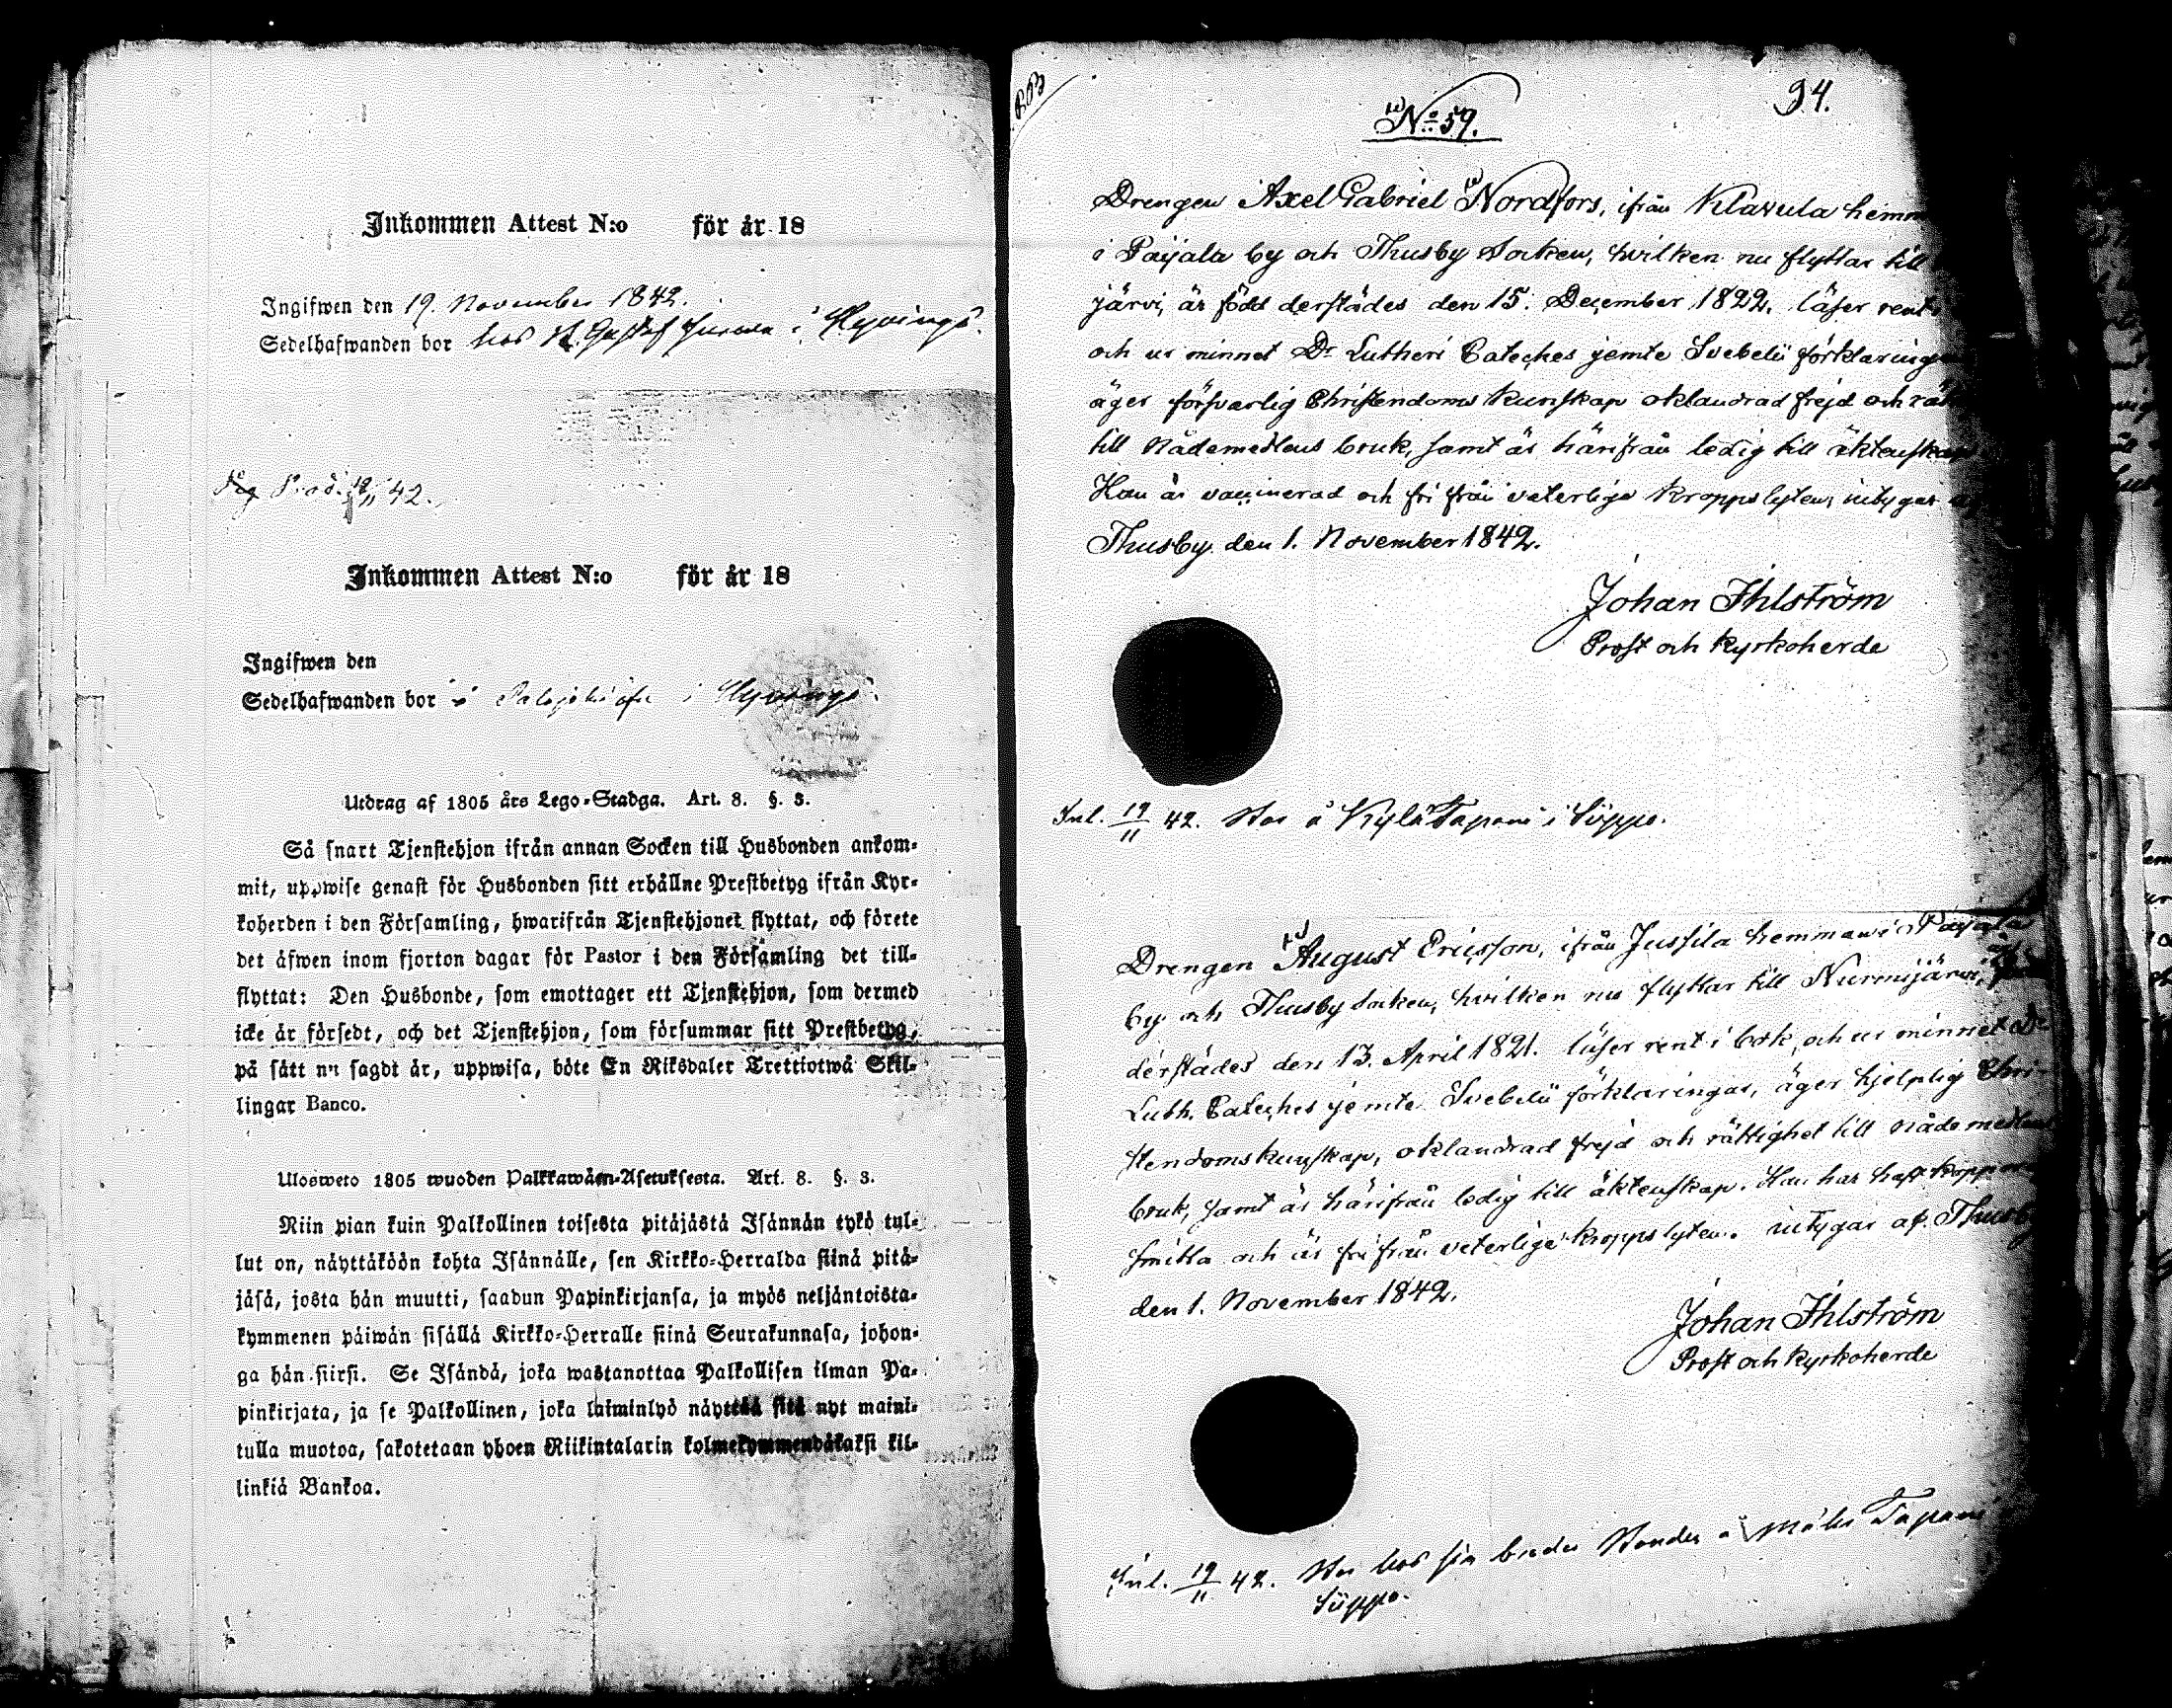 Inkommen Attest N:o för år 18
Ingifwen den 19. November 1842.
Sedelhafwanden bor hos Gustaf i Hyvinge.
19/11 42.
Inkommen Attest N:o för år 18
Ingifwen den
Sedelhafwanden bor i Hyvinge.
Utdrag af 1805 års Lego-Stadga. Art. 8. §. 3.
Så snart Tjenstehjon ifrån annan Socken till Husbonden ankom-
mit, uppwise genast för Husbonden sitt erhållne Prestbetyg ifrån Kyr-
koherden i den Församling, hwarifrån Tjenstehjonet flyttat, och förete
det äfwen inom fjorton dagar för Pastor i den Församling det till-
flyttat: Den Husbonde, som emottager ett Tjenstehjon, som dermed
icke är försedt, och det Tjenstehjon, som försummar sitt Prestbetyg,
på sätt nu sagdt är, uppwisa, böte En Riksdaler Trettiotwå Skil-
lingar Banco.
Ulosweto 1805 wuoden Palkkawäen-Asetuksesta. Art. 8. §. 3.
Niin pian kuin Palkollinen toisesta pitäjästä Isännän tykö tul-
lut on, näyttäköön kohta Isännälle, sen Kirkko-Herralda siinä pitä-
jäsä, josta hän muutti, saadun Papinkirjansa, ja myös neljäntoista-
kymmenen päiwän sisällä Kirkko-Herralle siinä Seurakunnasa, johon-
ga hän siirsi. Se Isändä, joka wastanottaa Palkollisen ilman Pa-
pinkirjata, ja se Palkollinen, joka laiminlyö näyttää sitä nyt maini-
tulla muotoa, sakotetaan yhden Riikintalarin kolmekymmendäkaksi kil-
linkiä Bankoa.
94.
No 59.
Drengen Axel Gabriel Nordfors, ifrån Klavula
i Paijala by och Thusby Socken, hvilken nu flyttar till
järvi, är född derstädes den 15. December 1822. läser rent
och ur minnet Dr Lutheri Cateches jemte Svebelii
äger försvarlig Christendoms kunskap oklandrad frejd och
till Nådemedlens bruk, samt är härifrån ledig till äktenskap
Han är vaccinerad och fri från veterliga kroppslyten, intygar
Thusby den 1. November 1842.
Johan Ihlström
Prost och Kyrkoherde
Inl. 19/11 42. Bor å Kylä Tapani i Süppo.
Drengen August Ericsson, ifrån Jussila hemman i Paijala
by och Thusby Socken, hvilken nu flyttar till Nurmijärvi,
derstädes den 13. April 1821. läser rent i bok, och ur minnet Dr
Luth. Cateches jemte Svebelii förklaringar, äger hjelplig Chri-
stendomskunskap, oklandrad frejd och rättighet till nådemedlens
bruk, samt är härifrån ledig till äktenskap. Han har haft
smitta och är fri från veterliga kroppslyten. intygar af Thusby
den 1. November 1842.
Johan Ihlström
Prost och Kyrkoherde
Inl. 19/11 42. Bor hos sin broder å Tapani
Süppo.